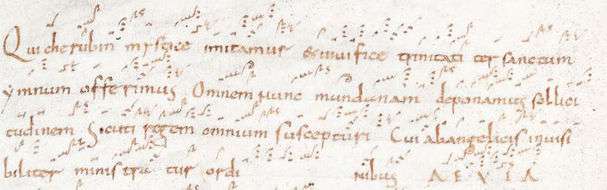 Qui cherubin mystice imitamur et vivifice trinitati ter sanctum
ymnium offerimus Omnem nunc mundanam deponamus sollici
tudinem Sicuti regem omnium suscepturi Cui ab angelicis invisi
biliter ministratur ordi nibus AEVIA